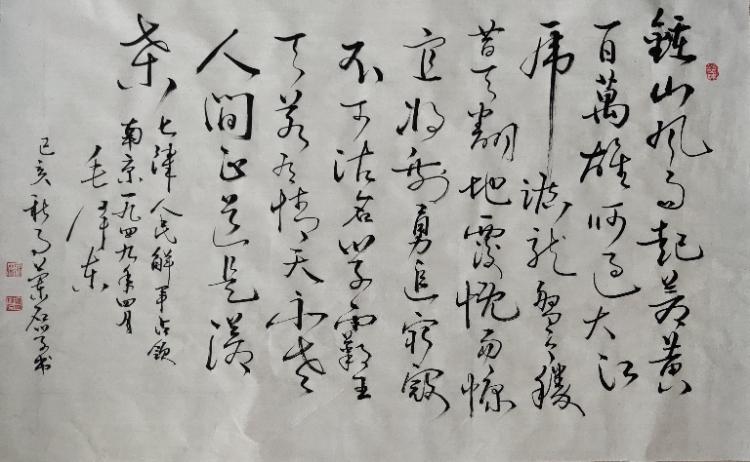 鍾山風雨起蒼黄
百萬雄師過大江
虎踞龍盤今勝
昔天翻地覆慨而慷
宜將剩勇追窮寇
不可沽名學霸王
天若有情天亦老
人間正道是滄
桑
七律 人民解軍占領
南京一九四九年四月
毛澤東
己亥秋月 書